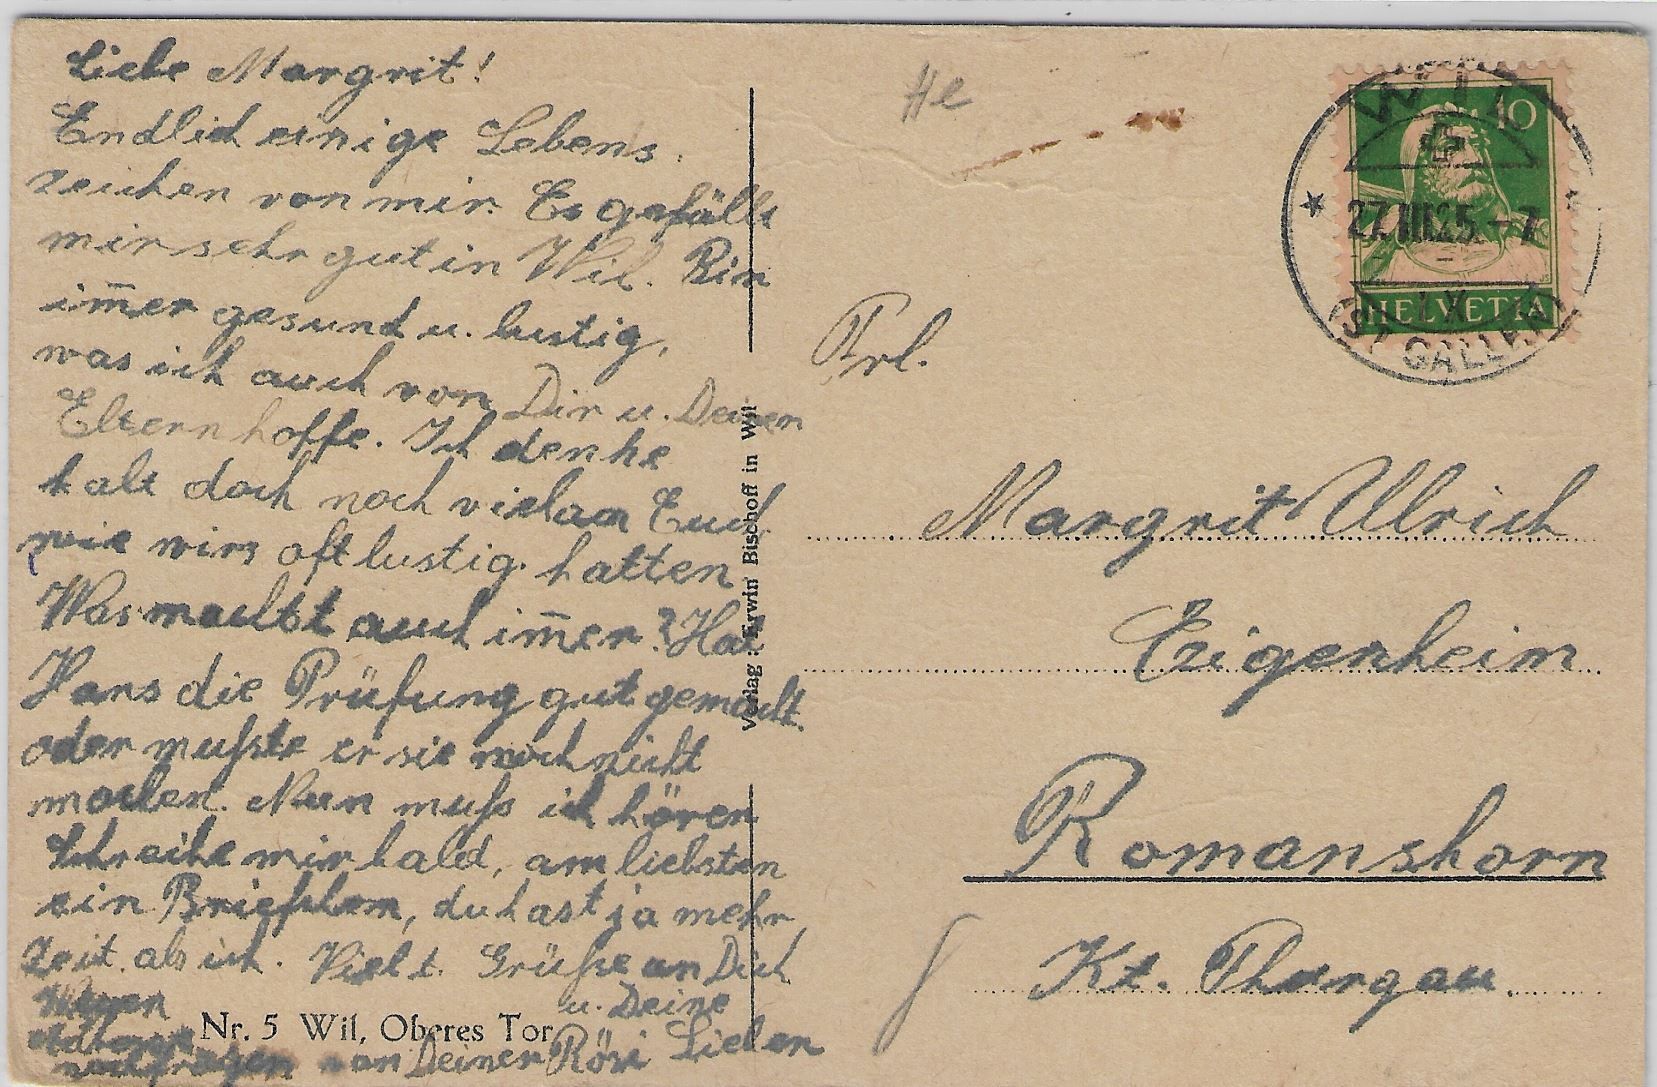 Liebe Margrit!
Endlich einige Lebens
zeichen von mir. Es gefällt
mir sehr gut in Wil. Bin
im̅er gesund u. lustig,
was ich auch von Dir u. Deinen
Eltern hoffe. Ich denke
halt doch noch viel an Euch
wie wirs oft lustig hatten
Was machst auch im̅er? Hat
Hans die Prüfung gut gemacht.
oder mußte er sie noch nicht
machen. Nun muß ich hören
Schreibe mir bald, am liebsten
ein Brieflein, du hast ja mehr
Zeit als ich. Viel t. Grüße an Dich
u. Deine
Lieben
von Deiner Rösi
Wegen
nachfragen
Nr. 5 Wil, Oberes Tor
Verlag: Erwin Bischoff in Wil
He
WIL
27.III.25.-7
(ST. GALLEN)
10
HELVETIA
Frl.
Margrit Ulrich
Eigenheim
Romanshorn
Kt. Thurgau.